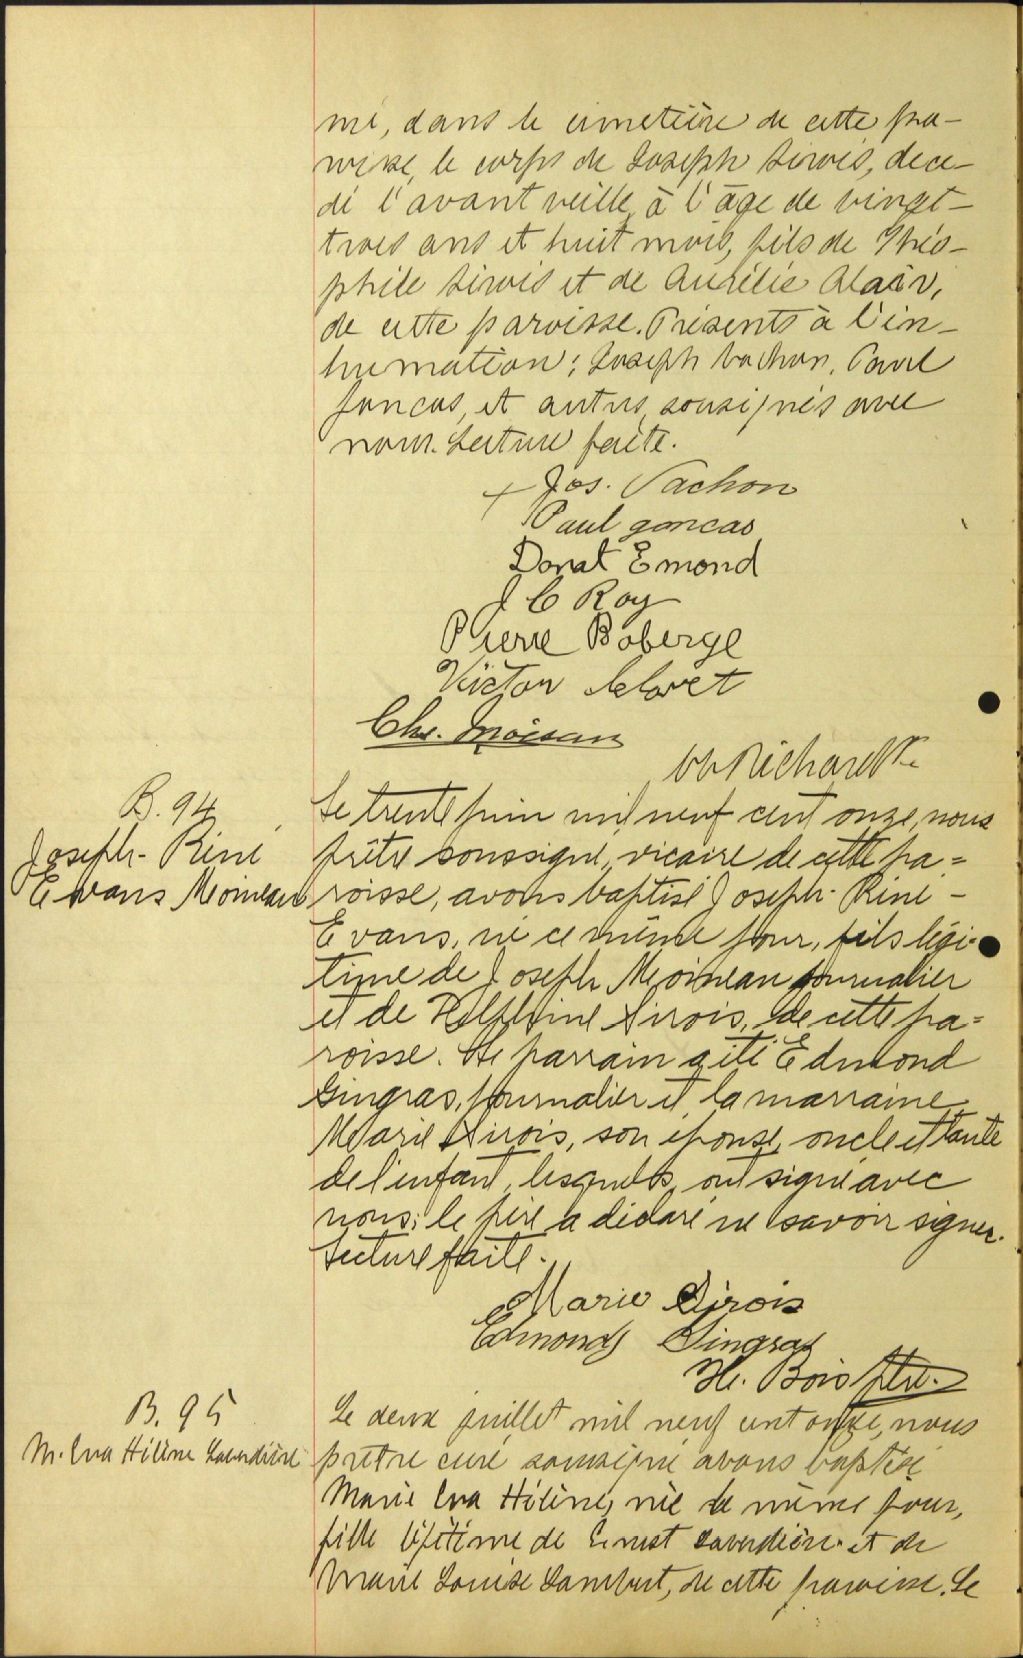 mé, dans le cimetière de cette pa-
roisse, le corps de Joseph Sirois, décé-
dé l'avant veille, à l'âge de vingt-
trois ans et huit mois, fils de Théo-
phile Sirois et de Aurélie Alain,
de cette paroisse. Présents à l'in-
humation: Joseph Vachon, Paul
Joncas, et autres, sousignés avec
nous. Lecture faite.
Jos. Vachon
Paul Joncas
Donat Emond
J C Roy
Pierre Roberge
Victor
Chs. Moisan
Richard Ptre
B. 94
Joseph-Réné
Evans Moineau
Le trente juin mil neuf cent onze, nous
prêtre soussigné, vicaire de cette pa=
roisse, avons baptisé Joseph-Réné-
Evans, né ce même jour, fils légi-
time de Joseph Moineau journalier
et de Delphine Sirois, de cette pa=
roisse. Le parrain a été Edmond
Gingras, journalier et la marraine
Marie Sirois, son épouse, oncle et tante
de l'enfant, lesquels, ont signé avec
nous; le père a déclaré ne savoir signer.
Lecture faite.
Marie Sirois
Edmond Gingras
H. Bois ptre.
B. 95
M. Eva Hélène Laverdière
Le deux juillet mil neuf cent onze, nous
prêtre curé sousigné avons baptisé
Marie Eva Hélène, née le même jour,
fille légitime de Ernest Laverdière et de
Marie Louise Lambert, de cette paroisse. Le